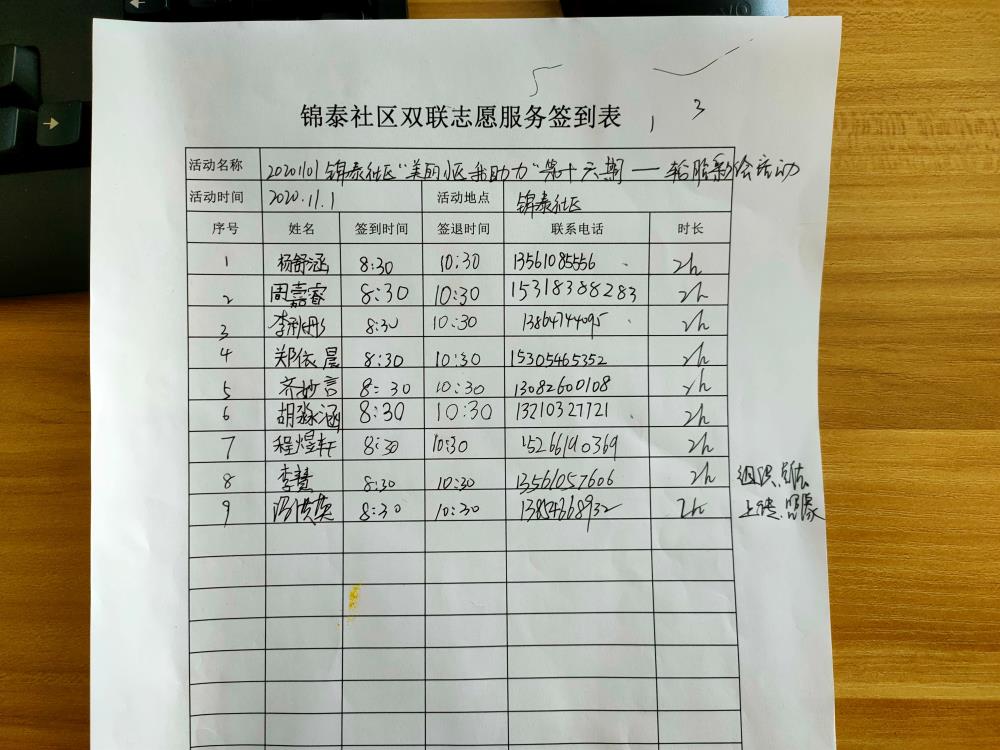 5
锦泰社区双联志愿服务签到表 1 3
活动名称 20201101锦泰社区"美丽小区我助力"第十六期——轮胎彩绘活动
活动时间 2020.11.1 活动地点 锦泰社区
序号 姓名 签到时间 签退时间 联系电话 时长
1 杨舒涵 8:30 10:30 13561085556 2h
2 周嘉睿 8:30 10:30 15318388283 2h
3 李彤彤 8:30 10:30 13864744095 2h
4 郑依晨 8:30 10:30 15305465352 2h
5 齐妙言 8:30 10:30 13082600108 2h
6 胡淼涵 8:30 10:30 13210327721 2h
7 程煜轩 8:30 10:30 15266190369 2h
8 李慧 8:30 10:30 13561057606 2h 组织
9 8:30 10:30 13854668932 2h 上传